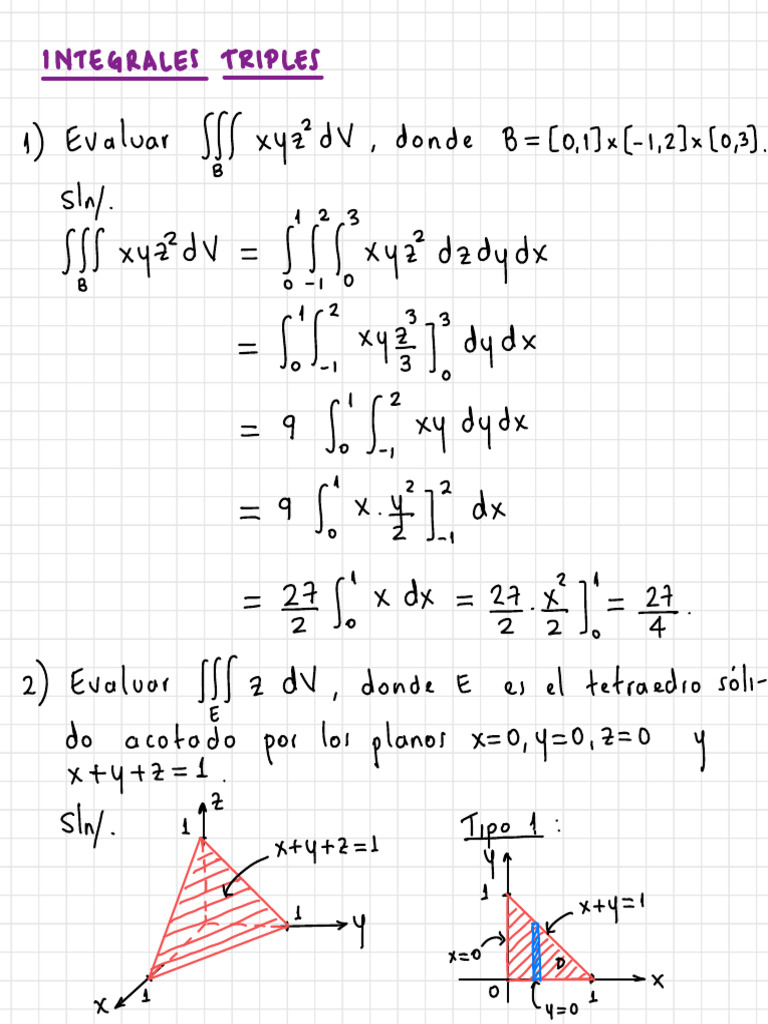 INTEGRALES TRIPLES
1) Evaluar ∭_B xyz² dV, donde B = [0,1]×[-1,2]×[0,3].
Sln/.
∭_B xyz² dV = ∫₀¹ ∫₋₁² ∫₀³ xyz² dz dy dx
= ∫₀¹ ∫₋₁² xy z³/3 ]₀³ dy dx
= 9 ∫₀¹ ∫₋₁² xy dy dx
= 9 ∫₀¹ x · y²/2 ]₋₁² dx
= 27/2 ∫₀¹ x dx = 27/2 · x²/2 ]₀¹ = 27/4.
2) Evaluar ∭_E z dV, donde E es el tetraedro sóli-
do acotado por los planos x=0, y=0, z=0 y
x+y+z=1.
Sln/.
z
1
x+y+z=1
1
y
x
1
Tipo 1:
y
1
x+y=1
x=0
D
x
0
1
y=0